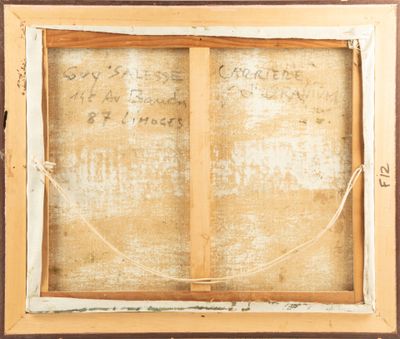 Guy SALESSE
145 Av Baudin
87 LIMOGES
CARRIERE
D'URANIUM
F12